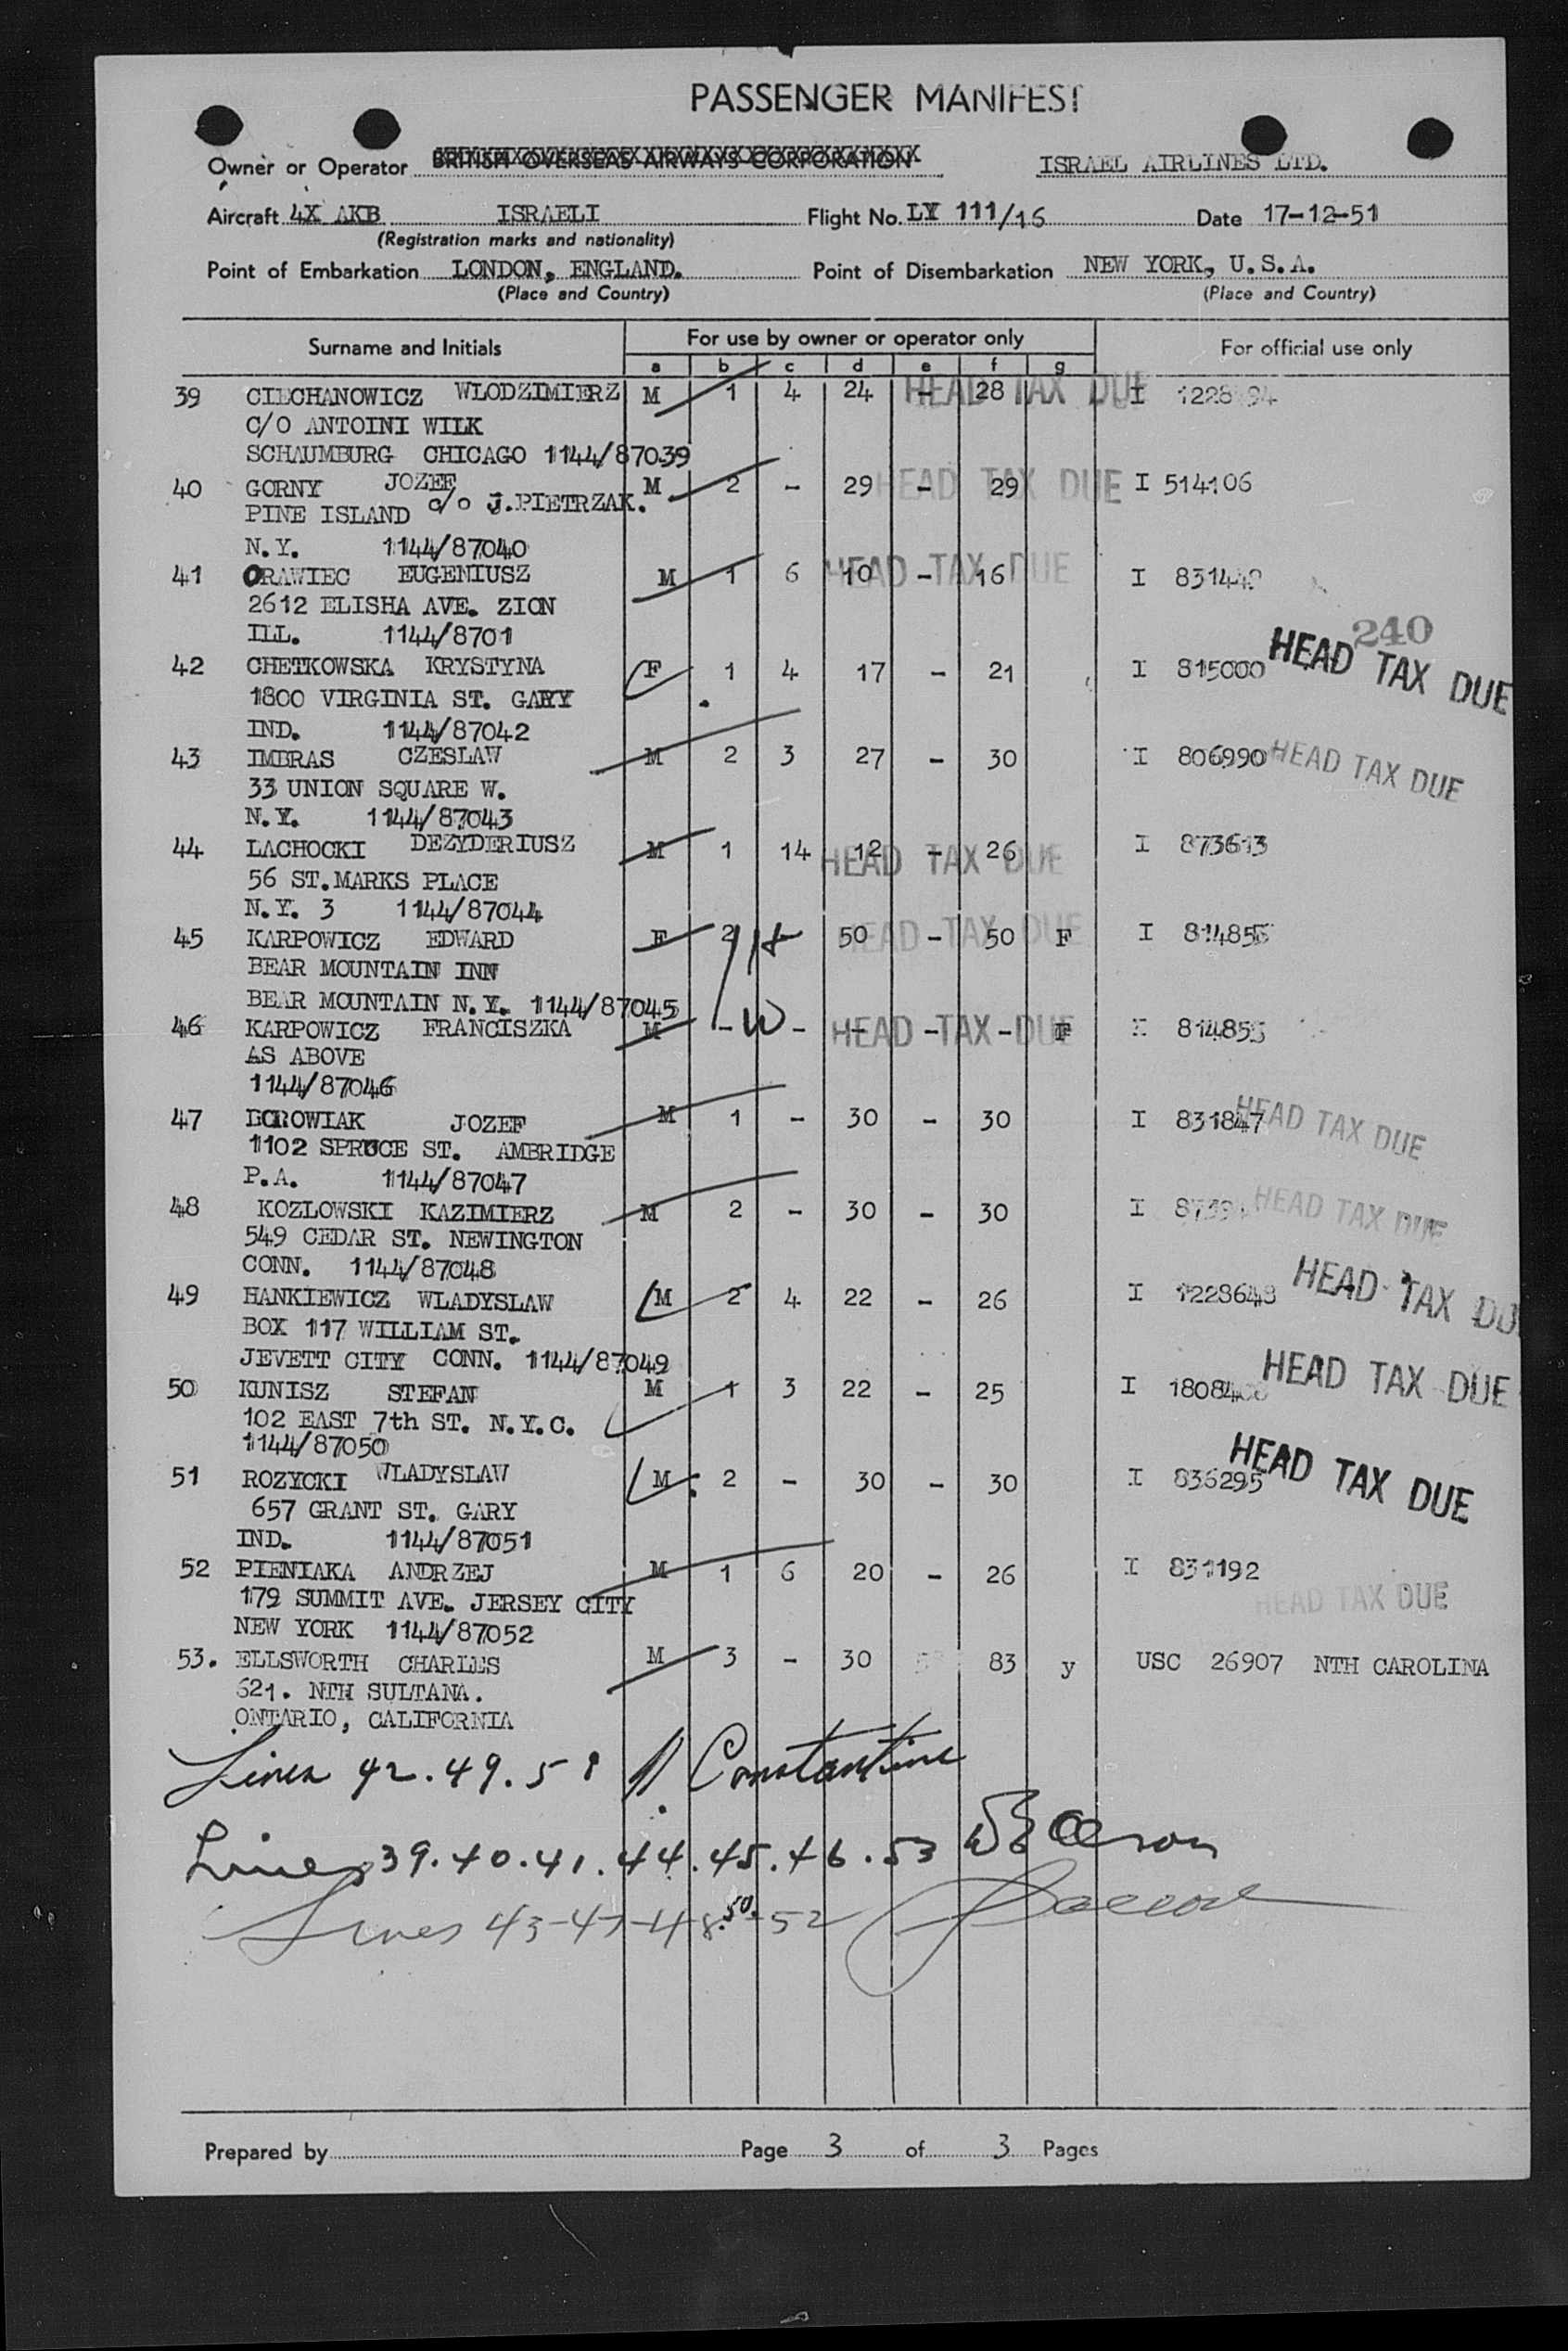 PASSENGER MANIFEST
Owner or Operator BRITISH OVERSEAS AIRWAYS CORPORATION ISRAEL AIRLINES LTD.
Aircraft 4X AKB ISRAELI Flight No. LY 111/16 Date 17-12-51
(Registration marks and nationality)
Point of Embarkation LONDON, ENGLAND. Point of Disembarkation NEW YORK, U.S.A.
(Place and Country) (Place and Country)
Surname and Initials For use by owner or operator only For official use only
a b c d e f g
39 CIECHANOWICZ WLODZIMIERZ M 1 4 24 - 28 HEAD TAX DUE I
C/O ANTOINI WILK
SCHAUMBURG CHICAGO 1144/87039
40 GORNY JOZEF M 2 - 29 - 29 HEAD TAX DUE I 514106
PINE ISLAND c/o J.PIETRZAK.
N.Y. 1144/87040
41 ORAWIEC EUGENIUSZ M 1 6 10 - 16 HEAD TAX DUE I
2612 ELISHA AVE. ZION
ILL. 1144/8701
240
42 CHETKOWSKA KRYSTYNA F 1 4 17 - 21 I 815000 HEAD TAX DUE
1800 VIRGINIA ST. GARY
IND. 1144/87042
43 IMBRAS CZESLAW M 2 3 27 - 30 I 806990 HEAD TAX DUE
33 UNION SQUARE W.
N.Y. 1144/87043
44 LACHOCKI DEZYDERIUSZ M 1 14 12 - 26 HEAD TAX DUE I 873613
56 ST.MARKS PLACE
N.Y. 3 1144/87044
45 KARPOWICZ EDWARD F 2 50 - 50 F HEAD TAX DUE I
BEAR MOUNTAIN INN
BEAR MOUNTAIN N.Y. 1144/87045
46 KARPOWICZ FRANCISZKA M - W - - - - F HEAD TAX DUE
AS ABOVE
1144/87046
47 BOROWIAK JOZEF M 1 - 30 - 30 I 831847 HEAD TAX DUE
1102 SPRUCE ST. AMBRIDGE
P.A. 1144/87047
48 KOZLOWSKI KAZIMIERZ M 2 - 30 - 30 I HEAD TAX DUE
549 CEDAR ST. NEWINGTON
CONN. 1144/87048
49 HANKIEWICZ WLADYSLAW M 2 4 22 - 26 I 1228648 HEAD TAX DU
BOX 117 WILLIAM ST.
JEVETT CITY CONN. 1144/87049
50 KUNISZ STEFAN M 1 3 22 - 25 I HEAD TAX DUE
102 EAST 7th ST. N.Y.C.
1144/87050
51 ROZYCKI WLADYSLAW M 2 - 30 - 30 I 836295 HEAD TAX DUE
657 GRANT ST. GARY
IND. 1144/87051
52 PIENIAKA ANDRZEJ M 1 6 20 - 26 I 831192
179 SUMMIT AVE. JERSEY CITY HEAD TAX DUE
NEW YORK 1144/87052
53. ELLSWORTH CHARLES M 3 - 30 83 y USC 26907 NTH CAROLINA
621. NTH SULTANA.
ONTARIO, CALIFORNIA
Lines 42.49.51 Constantine
Lines 39.40.41.44.45.46.53
Lines 43-47-48.50.-52
Prepared by Page 3 of 3 Pages